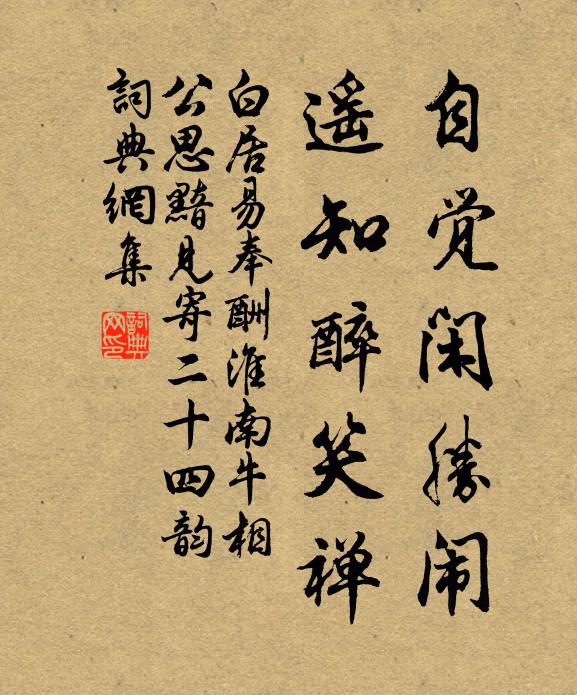 自觉闲勝闹
遥知醉笑禅
白居易奉酬淮南牛相
公思黯見寄二十四韵
詞典網集
詞典网印